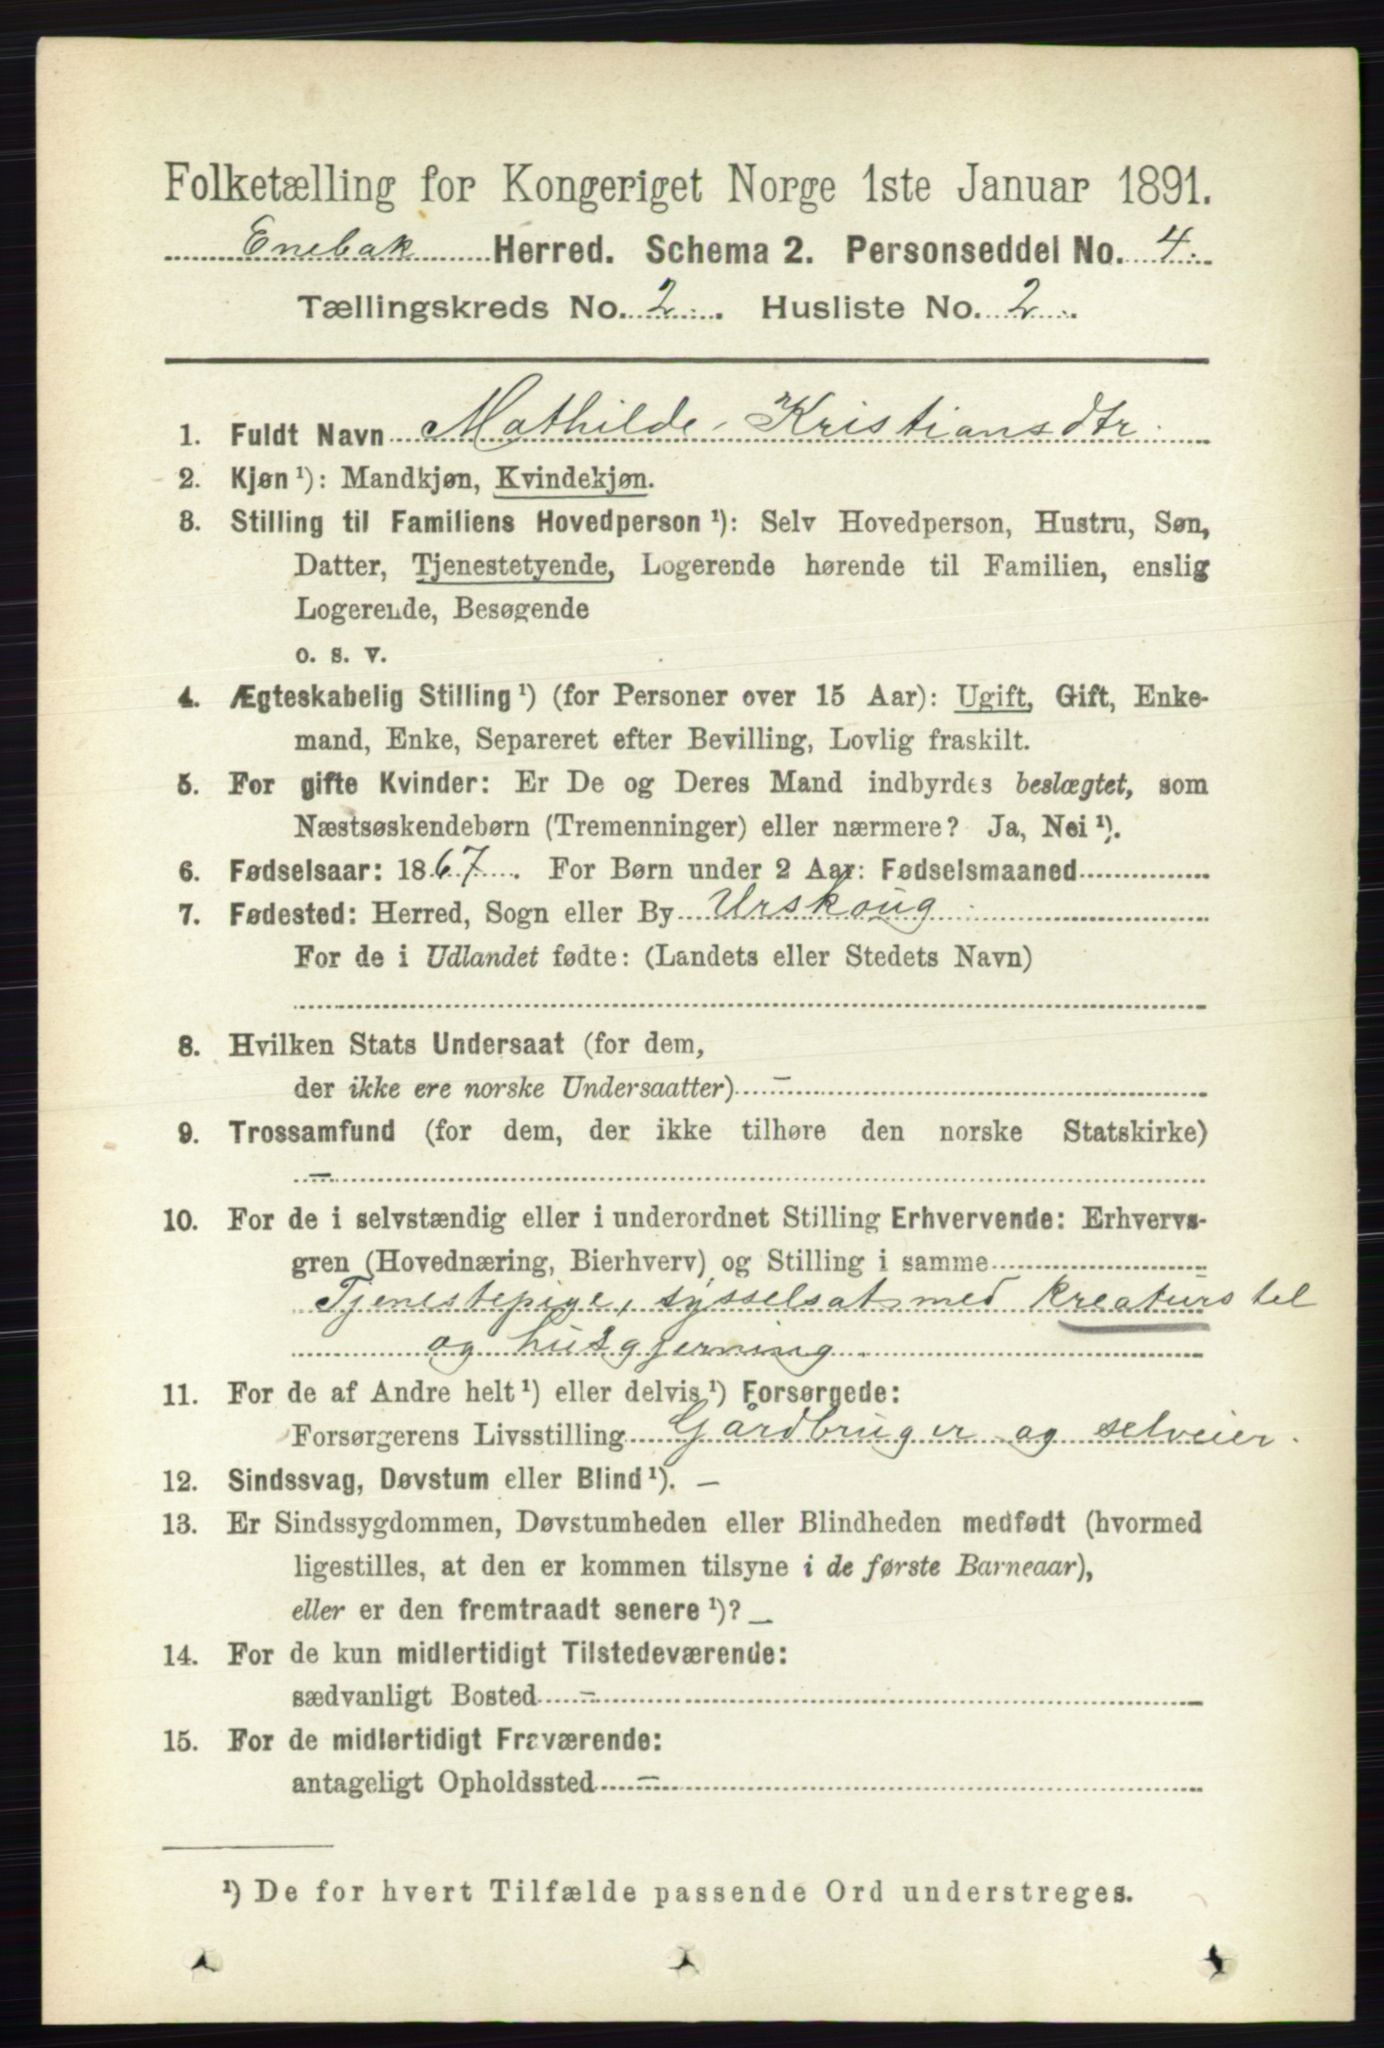 Folketælling for Kongeriget Norge 1ste Januar 1891.
Enebak Herred. Schema 2. Personseddel No. 4.
Tællingskreds No. 2. Husliste No. 2.
1. Fuldt Navn Mathilde Kristiansdtr.
2. Kjøn ¹): Mandkjøn, Kvindekjøn.
3. Stilling til Familiens Hovedperson ¹): Selv Hovedperson, Hustru, Søn,
Datter, Tjenestetyende, Logerende hørende til Familien, enslig
Logerende, Besøgende
o. s. v.
4. Ægteskabelig Stilling ¹) (for Personer over 15 Aar): Ugift, Gift, Enke-
mand, Enke, Separeret efter Bevilling, Lovlig fraskilt.
5. For gifte Kvinder: Er De og Deres Mand indbyrdes beslægtet, som
Næstsøskendebørn (Tremenninger) eller nærmere? Ja, Nei ¹).
6. Fødselsaar: 1867. For Børn under 2 Aar: Fødselsmaaned
7. Fødested: Herred, Sogn eller By Urskoug
For de i Udlandet fødte: (Landets eller Stedets Navn)
8. Hvilken Stats Undersaat (for dem,
der ikke ere norske Undersaatter) –
9. Trossamfund (for dem, der ikke tilhøre den norske Statskirke)
–
10. For de i selvstændig eller i underordnet Stilling Erhvervende: Erhvervs-
gren (Hovednæring, Bierhverv) og Stilling i samme
Tjenestepige, sysselsat med kreaturstel
og husgjerning
11. For de af Andre helt ¹) eller delvis ¹) Forsørgede:
Forsørgerens Livsstilling Gårdbruger og selveier.
12. Sindssvag, Døvstum eller Blind ¹). –
13. Er Sindssygdommen, Døvstumheden eller Blindheden medfødt (hvormed
ligestilles, at den er kommen tilsyne i de første Barneaar),
eller er den fremtraadt senere ¹)? –
14. For de kun midlertidigt Tilstedeværende:
sædvanligt Bosted –
15. For de midlertidigt Fraværende:
antageligt Opholdssted –
¹) De for hvert Tilfælde passende Ord understreges.